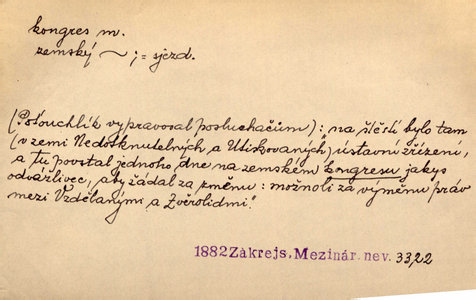 kongres m.
zemský ~ ; = sjezd.
(Poťouchlík vypravoval posluchačům): na štěstí bylo tam
(v zemi Nedotknutelných a Utiskovaných) ústavní zřízení,
a tu povstal jednoho dne na zemském kongresu jakýs
odvážlivec, aby žádal za změnu: možno-li za výměnu práv
mezi Vzdělanými a Zvěrolidmi."
1882 Zákrejs, Mezinár. nev. 33,22